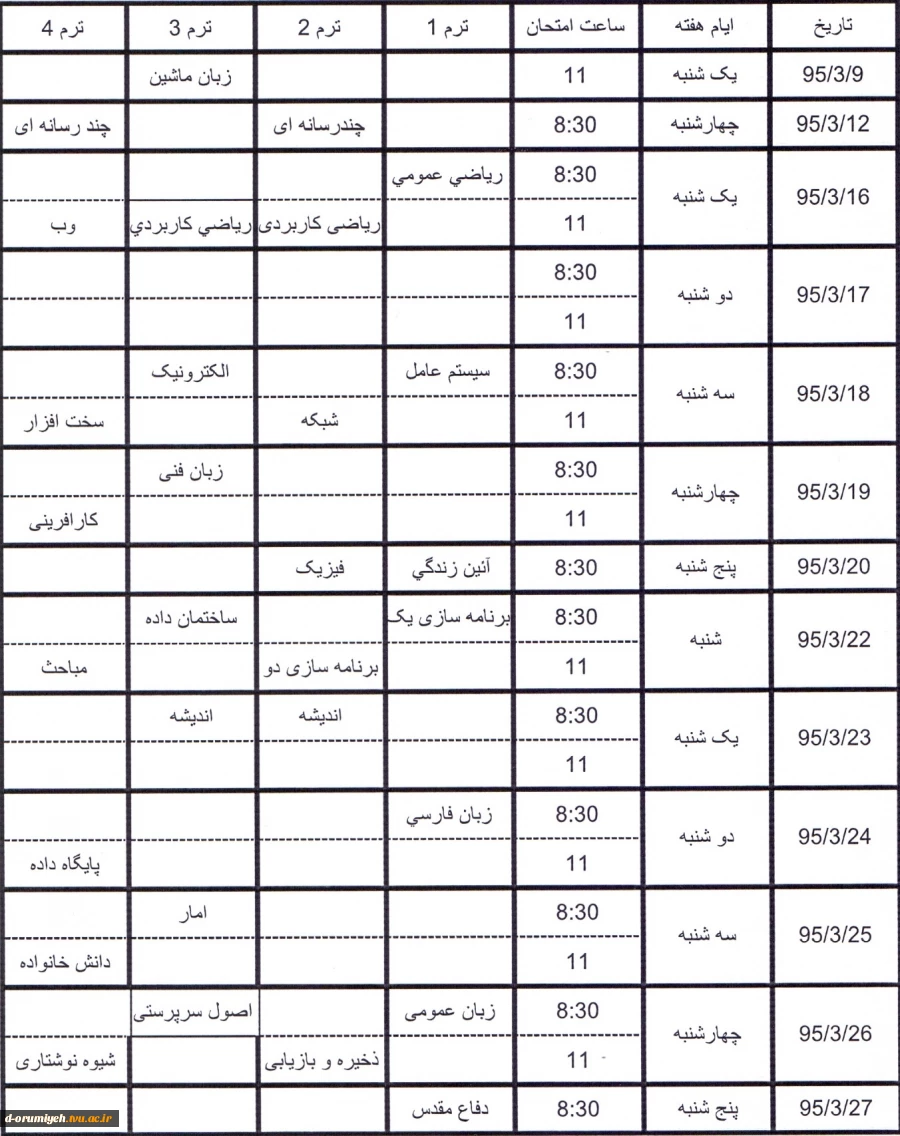 تاریخ ایام هفته ساعت امتحان ترم 1 ترم 2 ترم 3 ترم 4
95/3/9 یک شنبه 11 زبان ماشین
95/3/12 چهارشنبه 8:30 چندرسانه ای چند رسانه ای
95/3/16 یک شنبه 8:30 رياضي عمومي
11 ریاضی کاربردی رياضي كاربردي وب
95/3/17 دو شنبه 8:30
11
95/3/18 سه شنبه 8:30 سیستم عامل الکترونیک
11 شبکه سخت افزار
95/3/19 چهارشنبه 8:30 زبان فنی
11 کارافرینی
95/3/20 پنج شنبه 8:30 آئين زندگي فیزیک
95/3/22 شنبه 8:30 برنامه سازی یک ساختمان داده
11 برنامه سازی دو مباحث
95/3/23 یک شنبه 8:30 اندیشه اندیشه
11
95/3/24 دو شنبه 8:30 زبان فارسي
11 پایگاه داده
95/3/25 سه شنبه 8:30 امار
11 دانش خانواده
95/3/26 چهارشنبه 8:30 زبان عمومی اصول سرپرستی
11 ذخیره و بازیابی شیوه نوشتاری
95/3/27 پنج شنبه 8:30 دفاع مقدس
d-orumiyeh.tvu.ac.ir